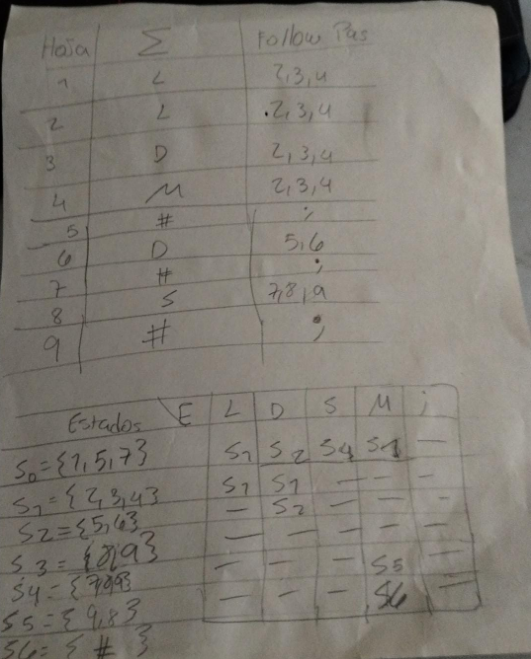 Hoja Σ Follow Pos
1 L 2,3,4
2 L 2,3,4
3 D 2,3,4
4 M 2,3,4
5 # ;
6 D 5,6
7 # ;
8 S 7,8,9
9 # ;
Estados E L D S M ;
S0={1,5,7} S1 S2 S4 S1 —
S1={2,3,4} S1 S1 — — -
S2={5,6} — S2 — — —
S3={8,9} — — — — —
S4= — — — S5 —
S5={9,8} — — — S6 —
S6={ # }